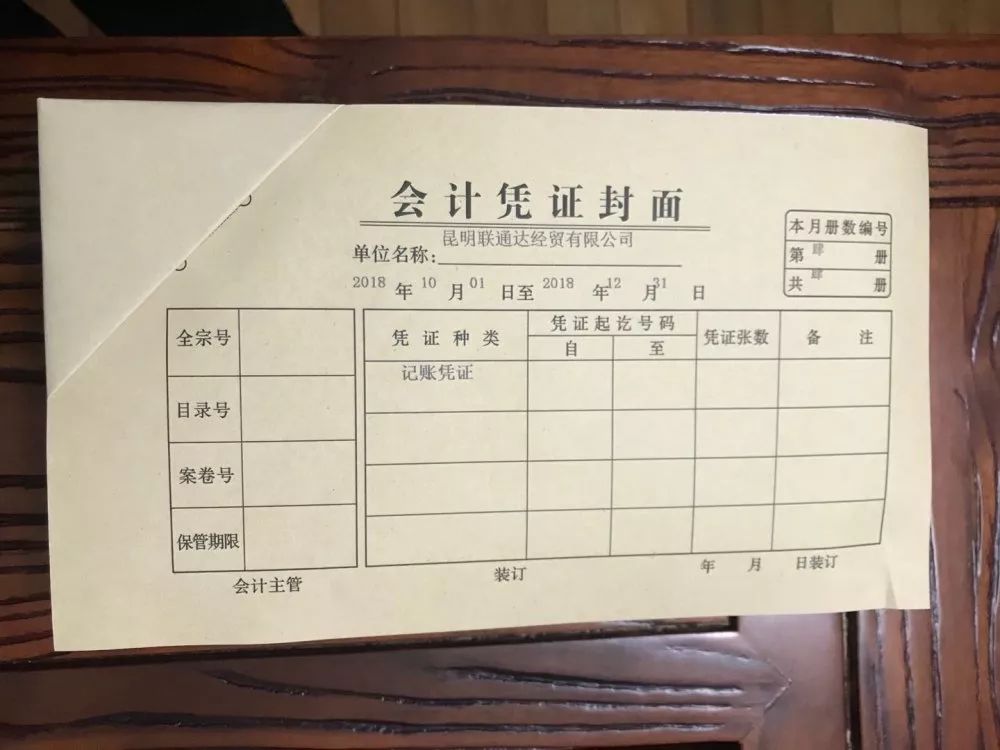 会计凭证封面
昆明联通达经贸有限公司
单位名称：
2018 年 10 月 01 日至 2018 年 12 月 31 日
本月册数编号
第 肆 册
共 肆 册
全宗号
目录号
案卷号
保管期限
凭证种类 凭证起讫号码 凭证张数 备注
自 至
记账凭证
会计主管 装订 年 月 日装订